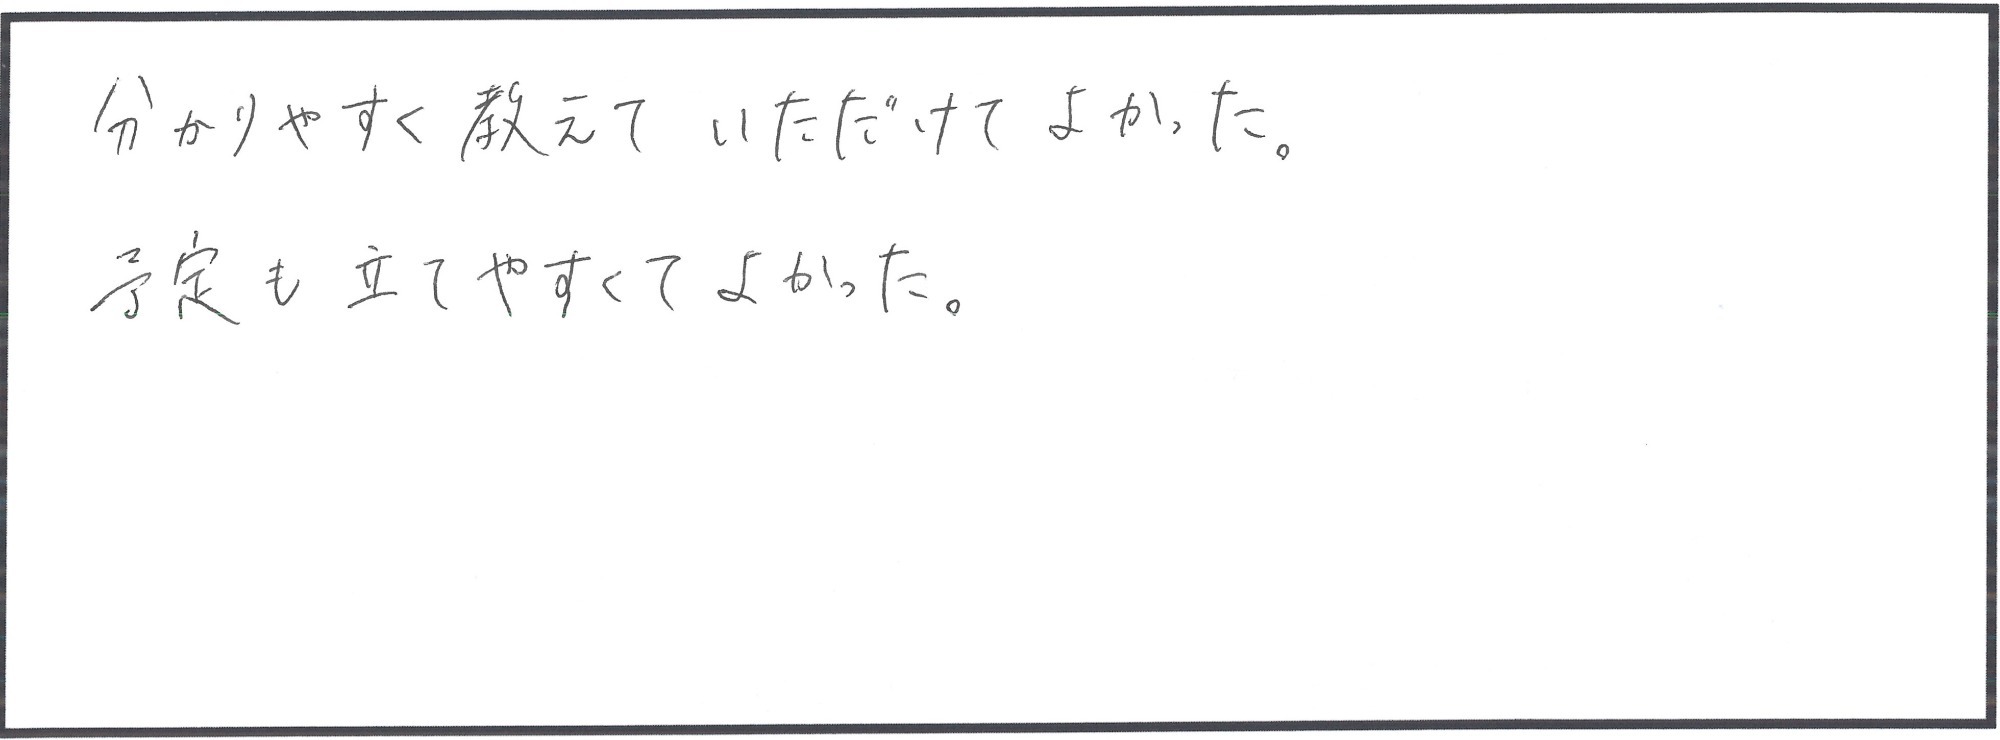 分かりやすく教えていただけてよかった。
予定も立てやすくてよかった。